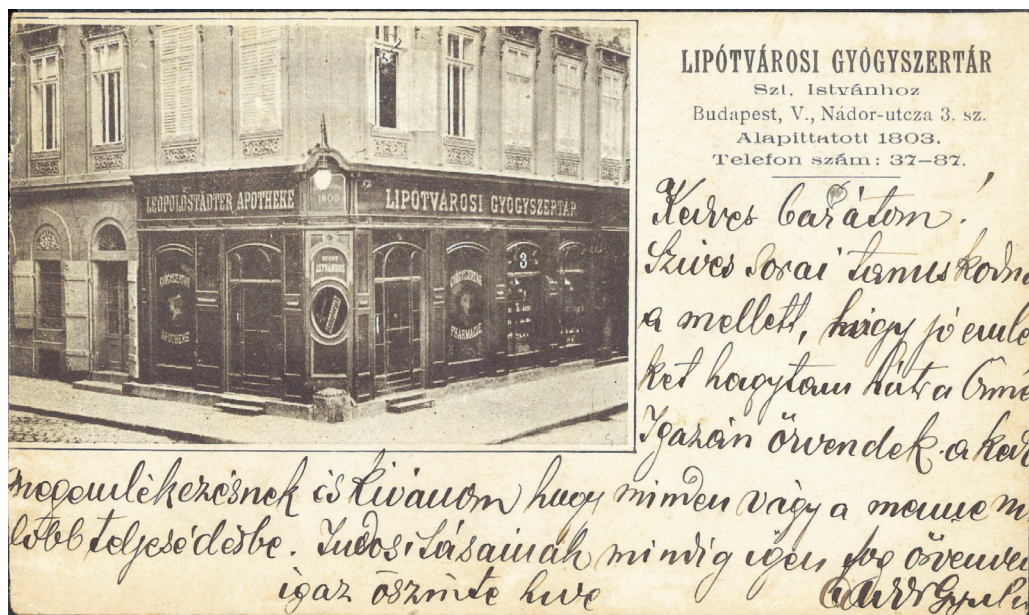 LIPÓTVÁROSI GYÓGYSZERTÁR
Szt. Istvánhoz
Budapest, V., Nádor-utcza 3. sz.
Alapittatott 1803.
Telefon szám: 37–87.
LEOPOLDSTÄDTER APOTHEKE
1803
LIPÓTVÁROSI GYÓGYSZERTÁR
SZENT
ISTVÁNHOZ
GYÓGYSZERTÁR
APOTHEKE
GYÓGYSZERTÁR
PHARMACIE
3
Kedves barátom!
Szives sorai tanuskodna
a mellett, hogy jó emlé
ket hagytam hátra
Igazán örvendek a ked
megemlékezésnek és kivánom hogy minden vágya menne m
lőbb teljesédésbe. Tudositásainak mindig igen fog örvende
igaz őszinte hive